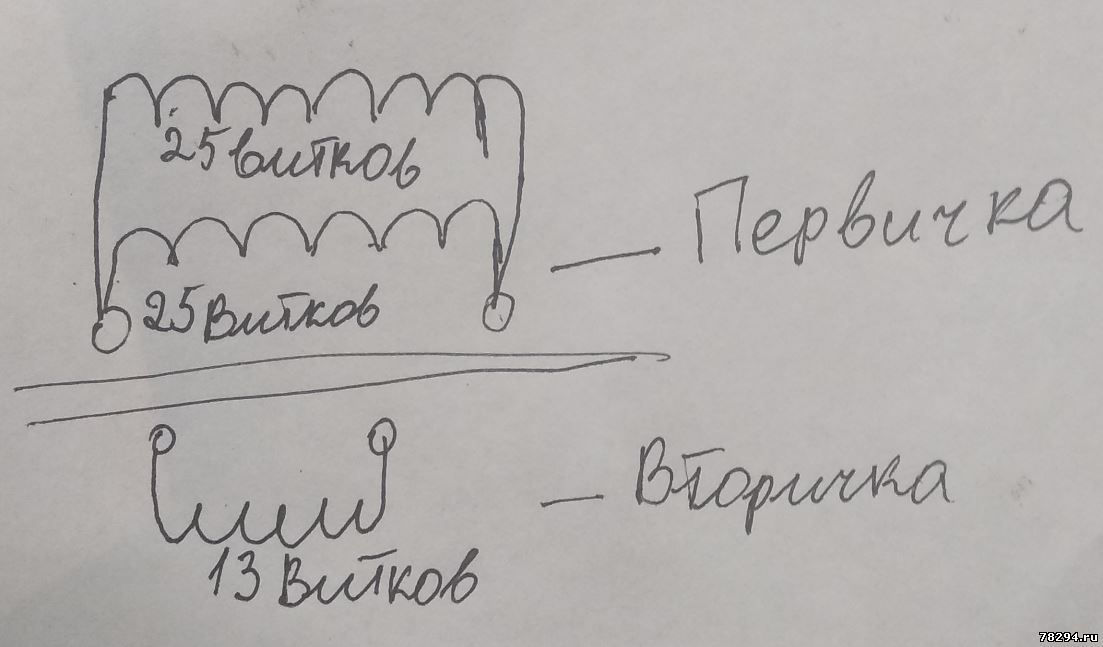 25 витков
Первичка
25 Витков
Вторичка
13 Витков
78294.ru